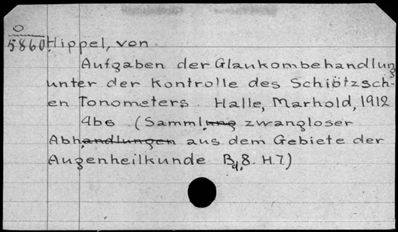 O
5860 Hippel, von
Aufgaben der Glaukombehandlung
unter der Kontrolle des Schiötzsch-
en Tonometers. Halle, Marhold, 1912
4bs (Sammlung zwangloser
Abhandlungen aus dem Gebiete der
Augenheilkunde Bd. 8. H.7)